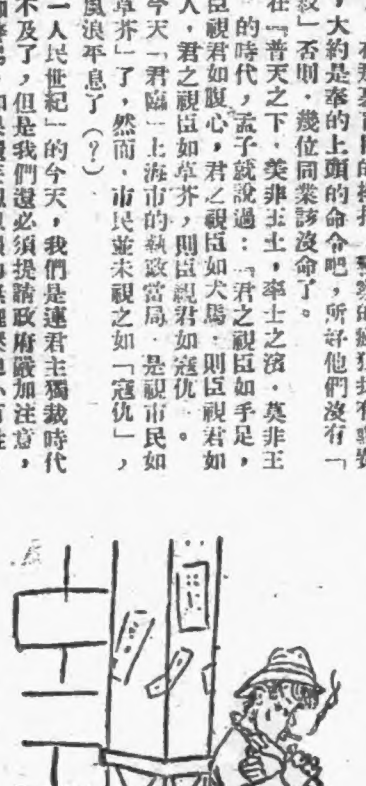 ，大約是奉的上頭的命令吧，所好他們沒有「
」否則，幾位同業該沒命了。
在「普天之下，莫非王土，率土之濱，莫非王
的時代，孟子就說過：「君之視臣如手足，
臣視君如腹心，君之視臣如犬馬，則臣視君如
人，君之視臣如草芥，則臣視君如寇仇」。
今天「君臨」上海市的執政當局，是視市民如
草芥」了，然而，市民並未視之如「寇仇」，
風浪平息了（？）
人民世紀」的今天，我們是連君主獨裁時代
不及了，但是我們還必須提請政府嚴加注意，